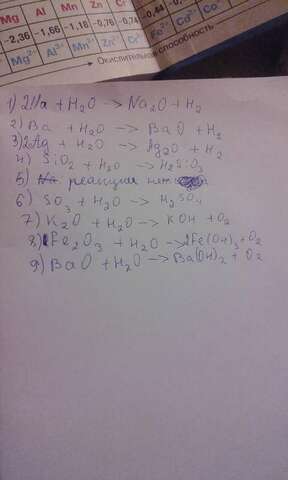 Mg Al Mn Zn Cr
-2,36 -1,66 -1,18 -0,76 -0,74 -0,44
Mg²⁺ Al³⁺ Mn²⁺ Zn²⁺ Cr Fe²⁺ Cd²⁺ Co²⁺
Окислительная способность
1) 2Na + H₂O → Na₂O + H₂
2) Ba + H₂O → BaO + H₂
3) 2Ag + H₂O → Ag₂O + H₂
4) SiO₂ + H₂O → H₂SiO₃
5) реакция нет
6) SO₃ + H₂O → H₂SO₄
7) K₂O + H₂O → KOH + O₂
8) Fe₂O₃ + H₂O → 2Fe(OH)₃ + O₂
9) BaO + H₂O → Ba(OH)₂ + O₂